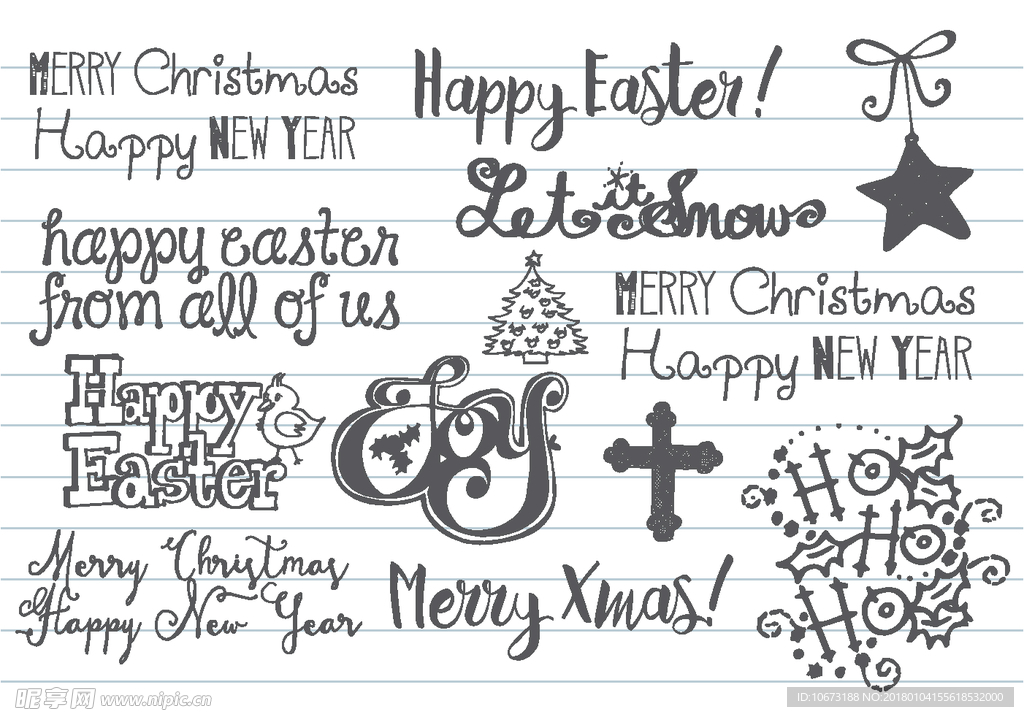 MERRY Christmas
Happy NEW YEAR
Happy Easter!
Let it Snow
happy easter
from all of us
MERRY Christmas
Happy NEW YEAR
Happy
Easter
Joy
HO
HO
HO
Merry Christmas
Happy New Year
Merry Xmas!
昵享网 www.nipic.cn
ID:10673188 NO:20180104155618532000